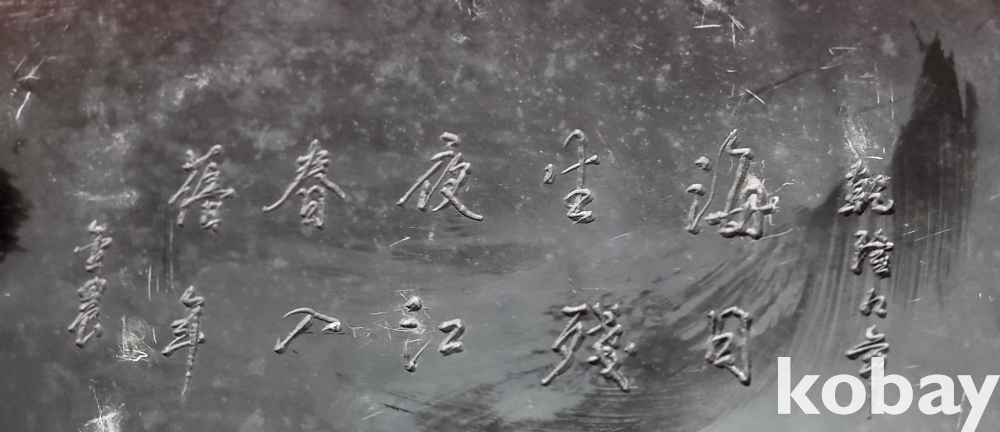 乾隆九年
海日
生殘
夜江
春入
舊年
雲農
kobay